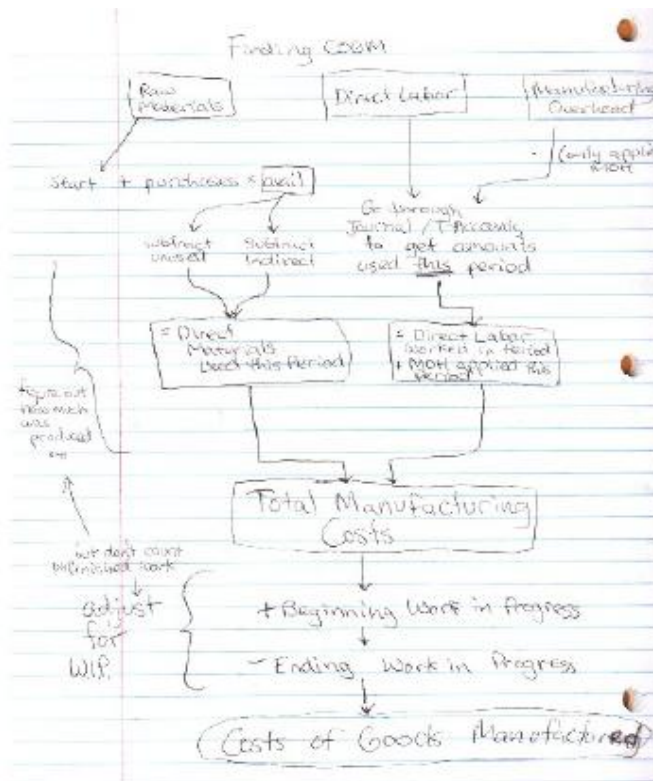 Finding COGM
Raw
Materials
Direct Labor
Manufacturing
Overhead
- (only applied
MOH
Start + purchases = avail
subtract
unused
Subtract
Indirect
Go through
Journal / T Accounts
to get amounts
used this period
= Direct
Materials
Used this Period
= Direct Labor
Worked in Period
+ MOH applied this
period
figure out
how much
was
produced
Total Manufacturing
Costs
but don't count
unfinished work
adjust
for
WIP.
+ Beginning Work in Progress
- Ending Work in Progress
Costs of Goods Manufactured